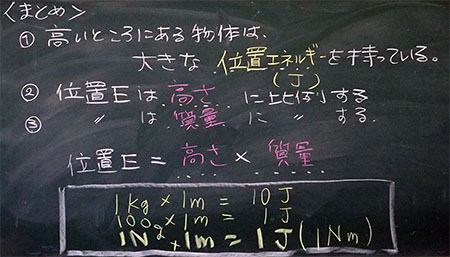 <まとめ>
① 高いところにある物体は、
大きな 位置エネルギーを持っている。
(J)
② 位置Eは 高さ に比例する
③ 〃 は 質量 に 〃 する.
位置E = 高さ × 質量
1kg × 1m = 10 J
100g × 1m = 1 J
1N × 1m = 1J (1Nm)